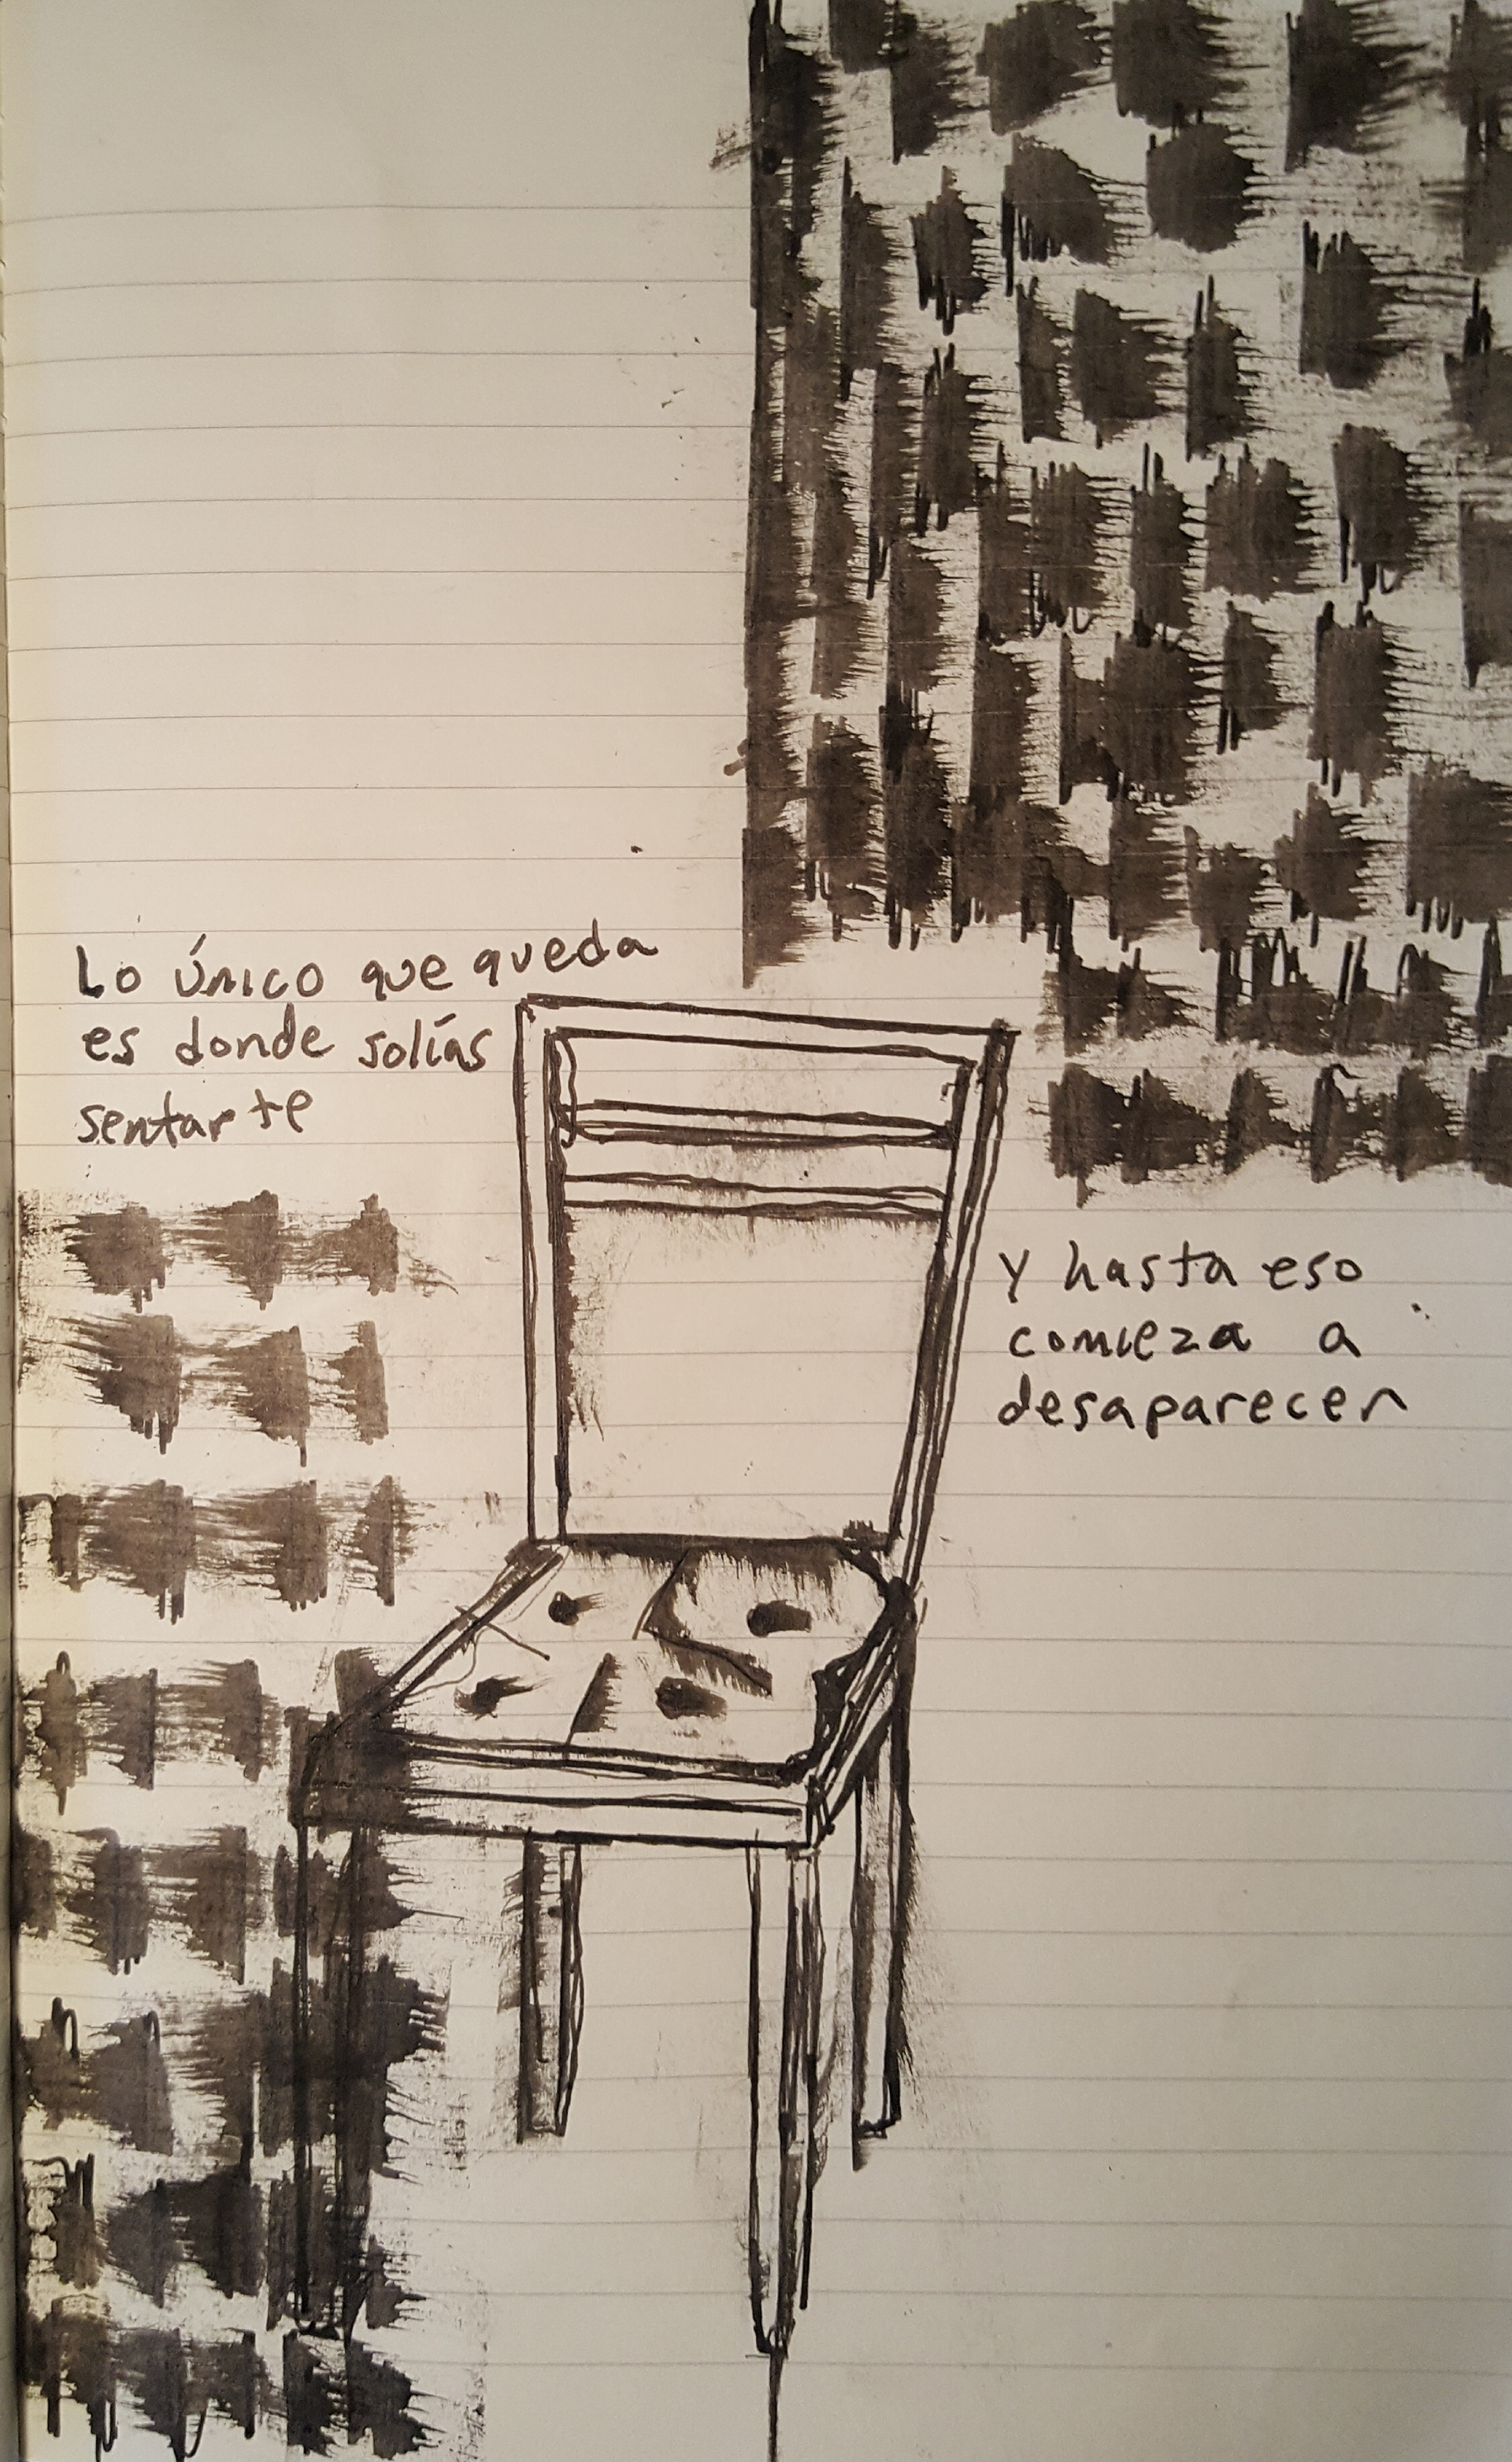 Lo único que queda
es donde solías
sentarte
Y hasta eso
comieza a
desaparecer